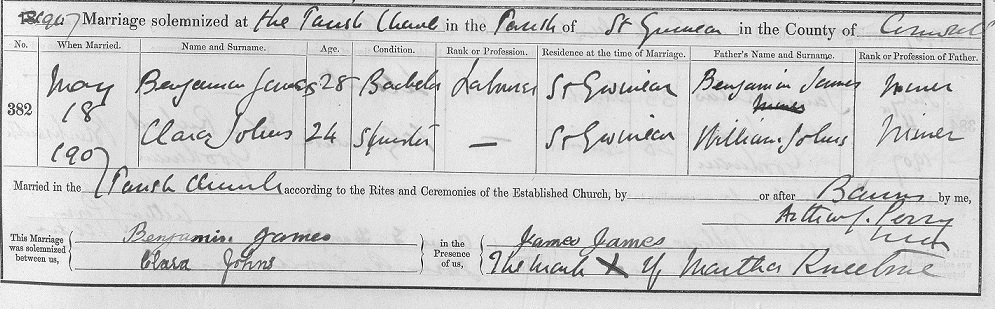 1907 Marriage solemnized at the Parish Church in the Parish of St Gwinear in the County of Cornwall
No. When Married. Name and Surname. Age. Condition. Rank or Profession. Residence at the time of Marriage. Father's Name and Surname. Rank or Profession of Father.
382 May 18 1907 Benjamin James 28 Bachelor Labourer St Gwinear Benjamin James Miner
Clara Johns 24 Spinster — St Gwinear William Johns Miner
Married in the Parish Church according to the Rites and Ceremonies of the Established Church, by or after Banns by me,
Arthur J. Perry
This Marriage was solemnized between us, Benjamin James in the Presence of us, James James
Clara Johns The Mark X of Martha